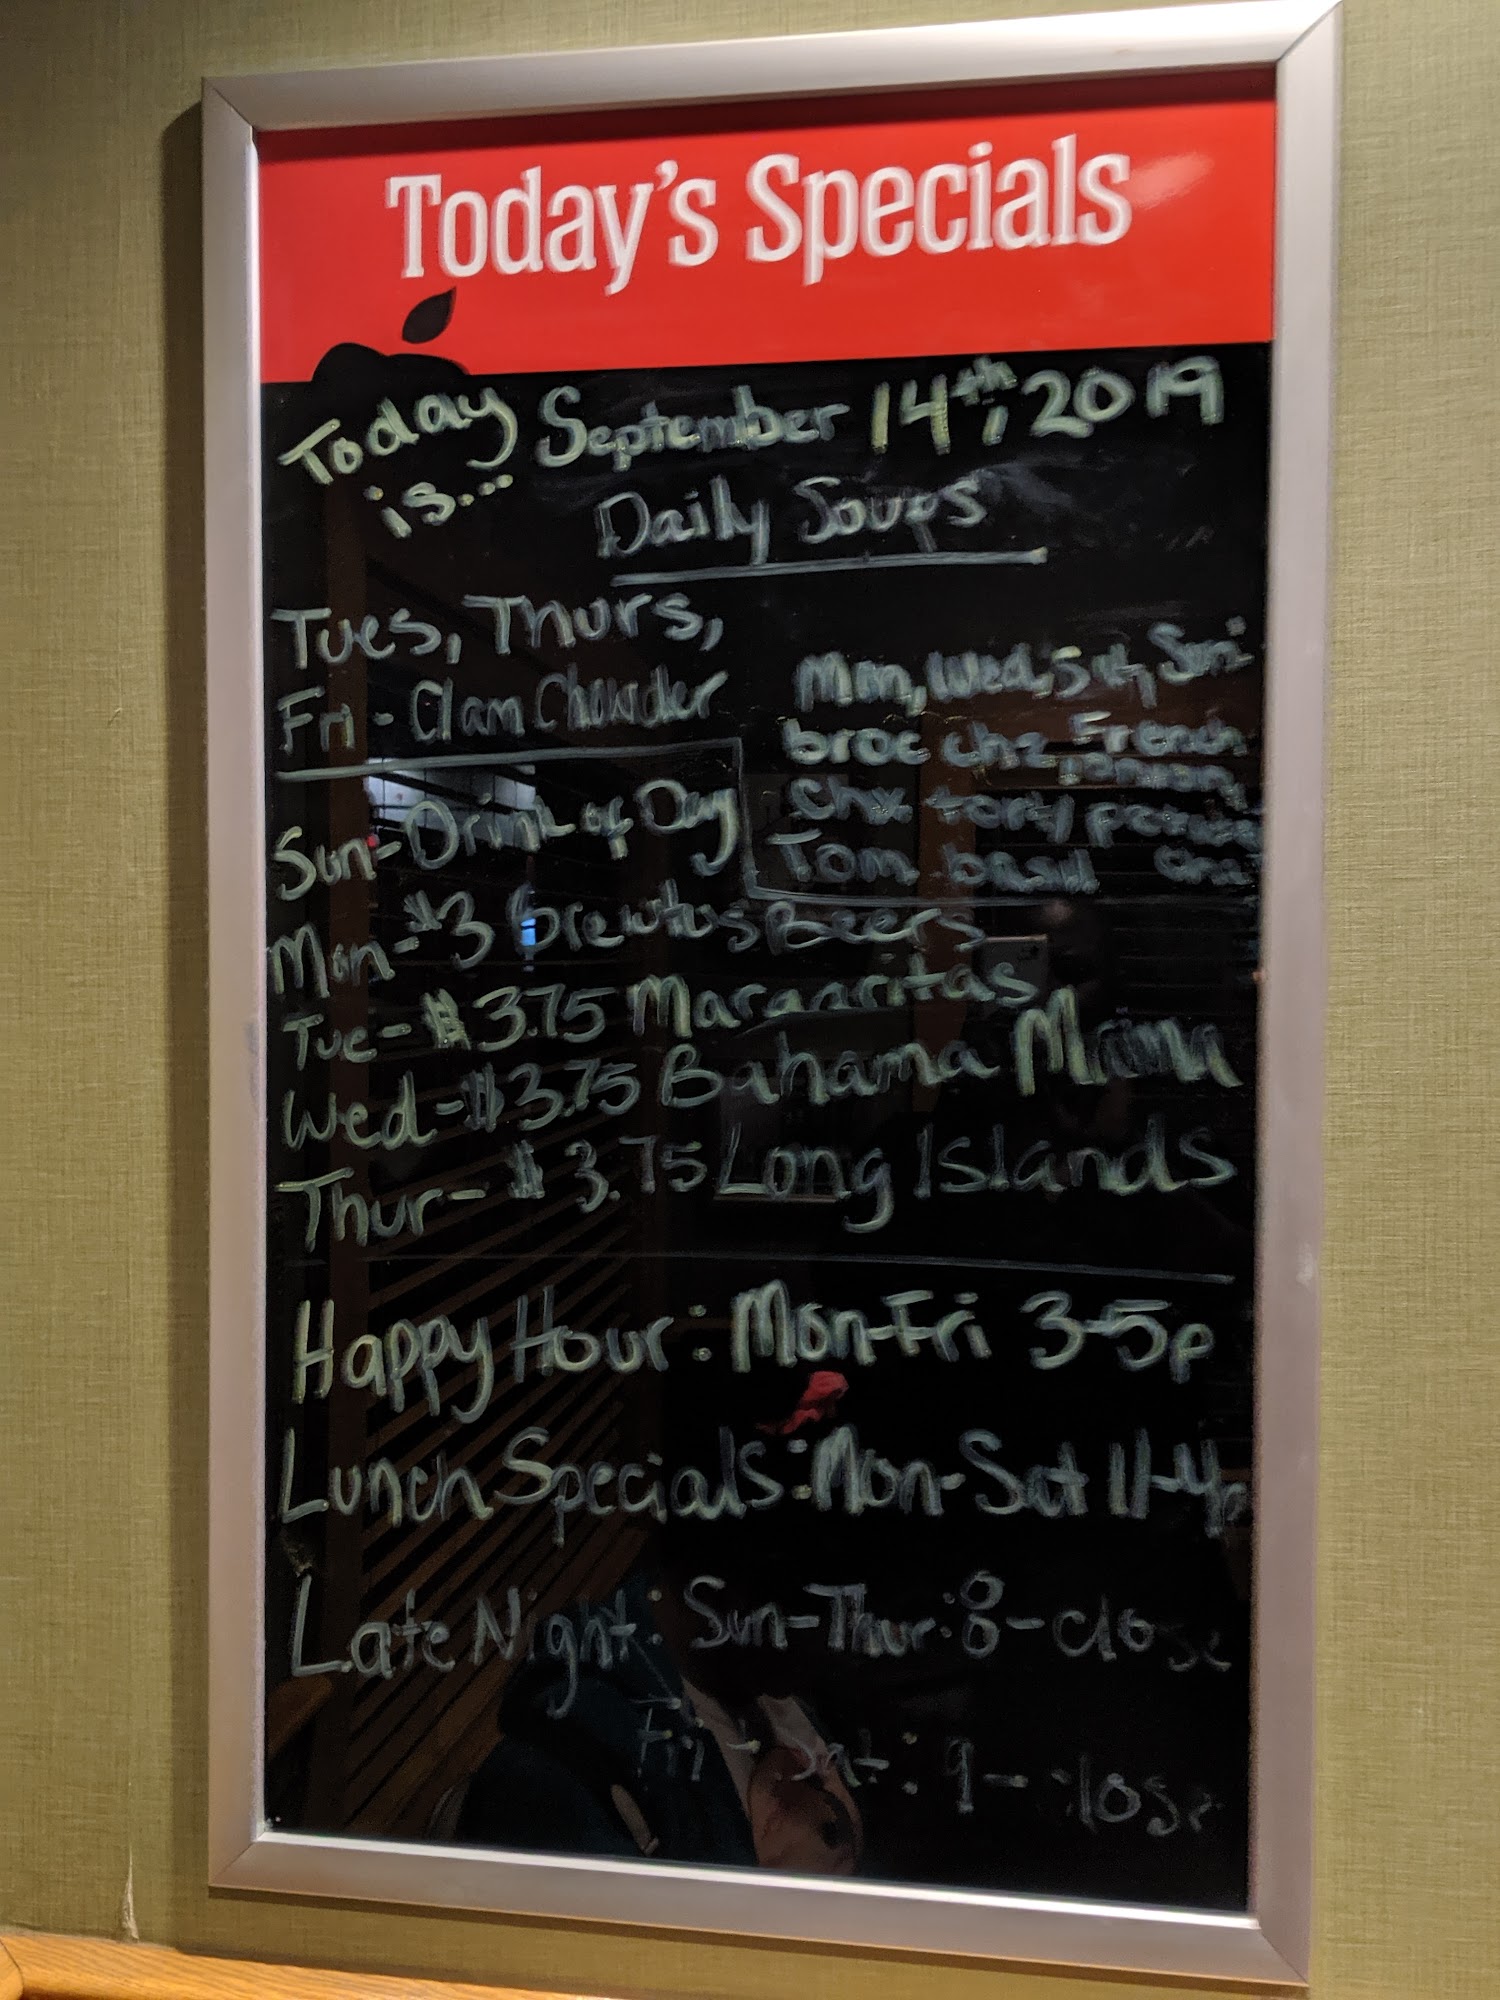 Today's Specials
Today is... September 14th, 2019
Daily Soups
Tues, Thurs,
Fri - Clam Chowder
Mon, Wed, Sat, Sun:
broc chz French
Chx tort
Tom basil
Sun - Drink of Day
Mon - $3 Brewtus Beers
Tue - $3.75 Margaritas
Wed - $3.75 Bahama Mama
Thur - $3.75 Long Islands
Happy Hour: Mon-Fri 3-5p
Lunch Specials: Mon-Sat 11-4p
Late Night: Sun-Thur: 8-close
Fri - Sat: 9-close